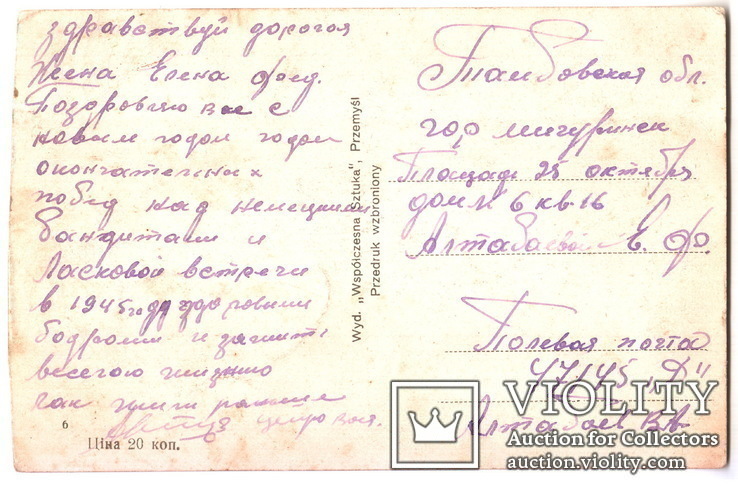 здравствуй дорогая
Жена Елена Фед.
Поздоровляю вас с
новым годом годом
окончательных
побед над немецкими
бандитами и
ласковой встречи
в 1945 году здоровыми
бодрыми и зажить
веселою жизнью
как жили раньше
целую вас.
6
Ціна 20 коп.
Wyd. „Współczesna Sztuka", Przemyśl
Przedruk wzbroniony
Тамбовская обл.
гор мичуринск
Площадь 25 октября
дом № 6 кв. 16
Алтабаевой Е. Ф.
Полевая почта
47145 „Д"
Алтабаев В.А.
VIOLITY
Auction for Collectors
www.auction.violity.com